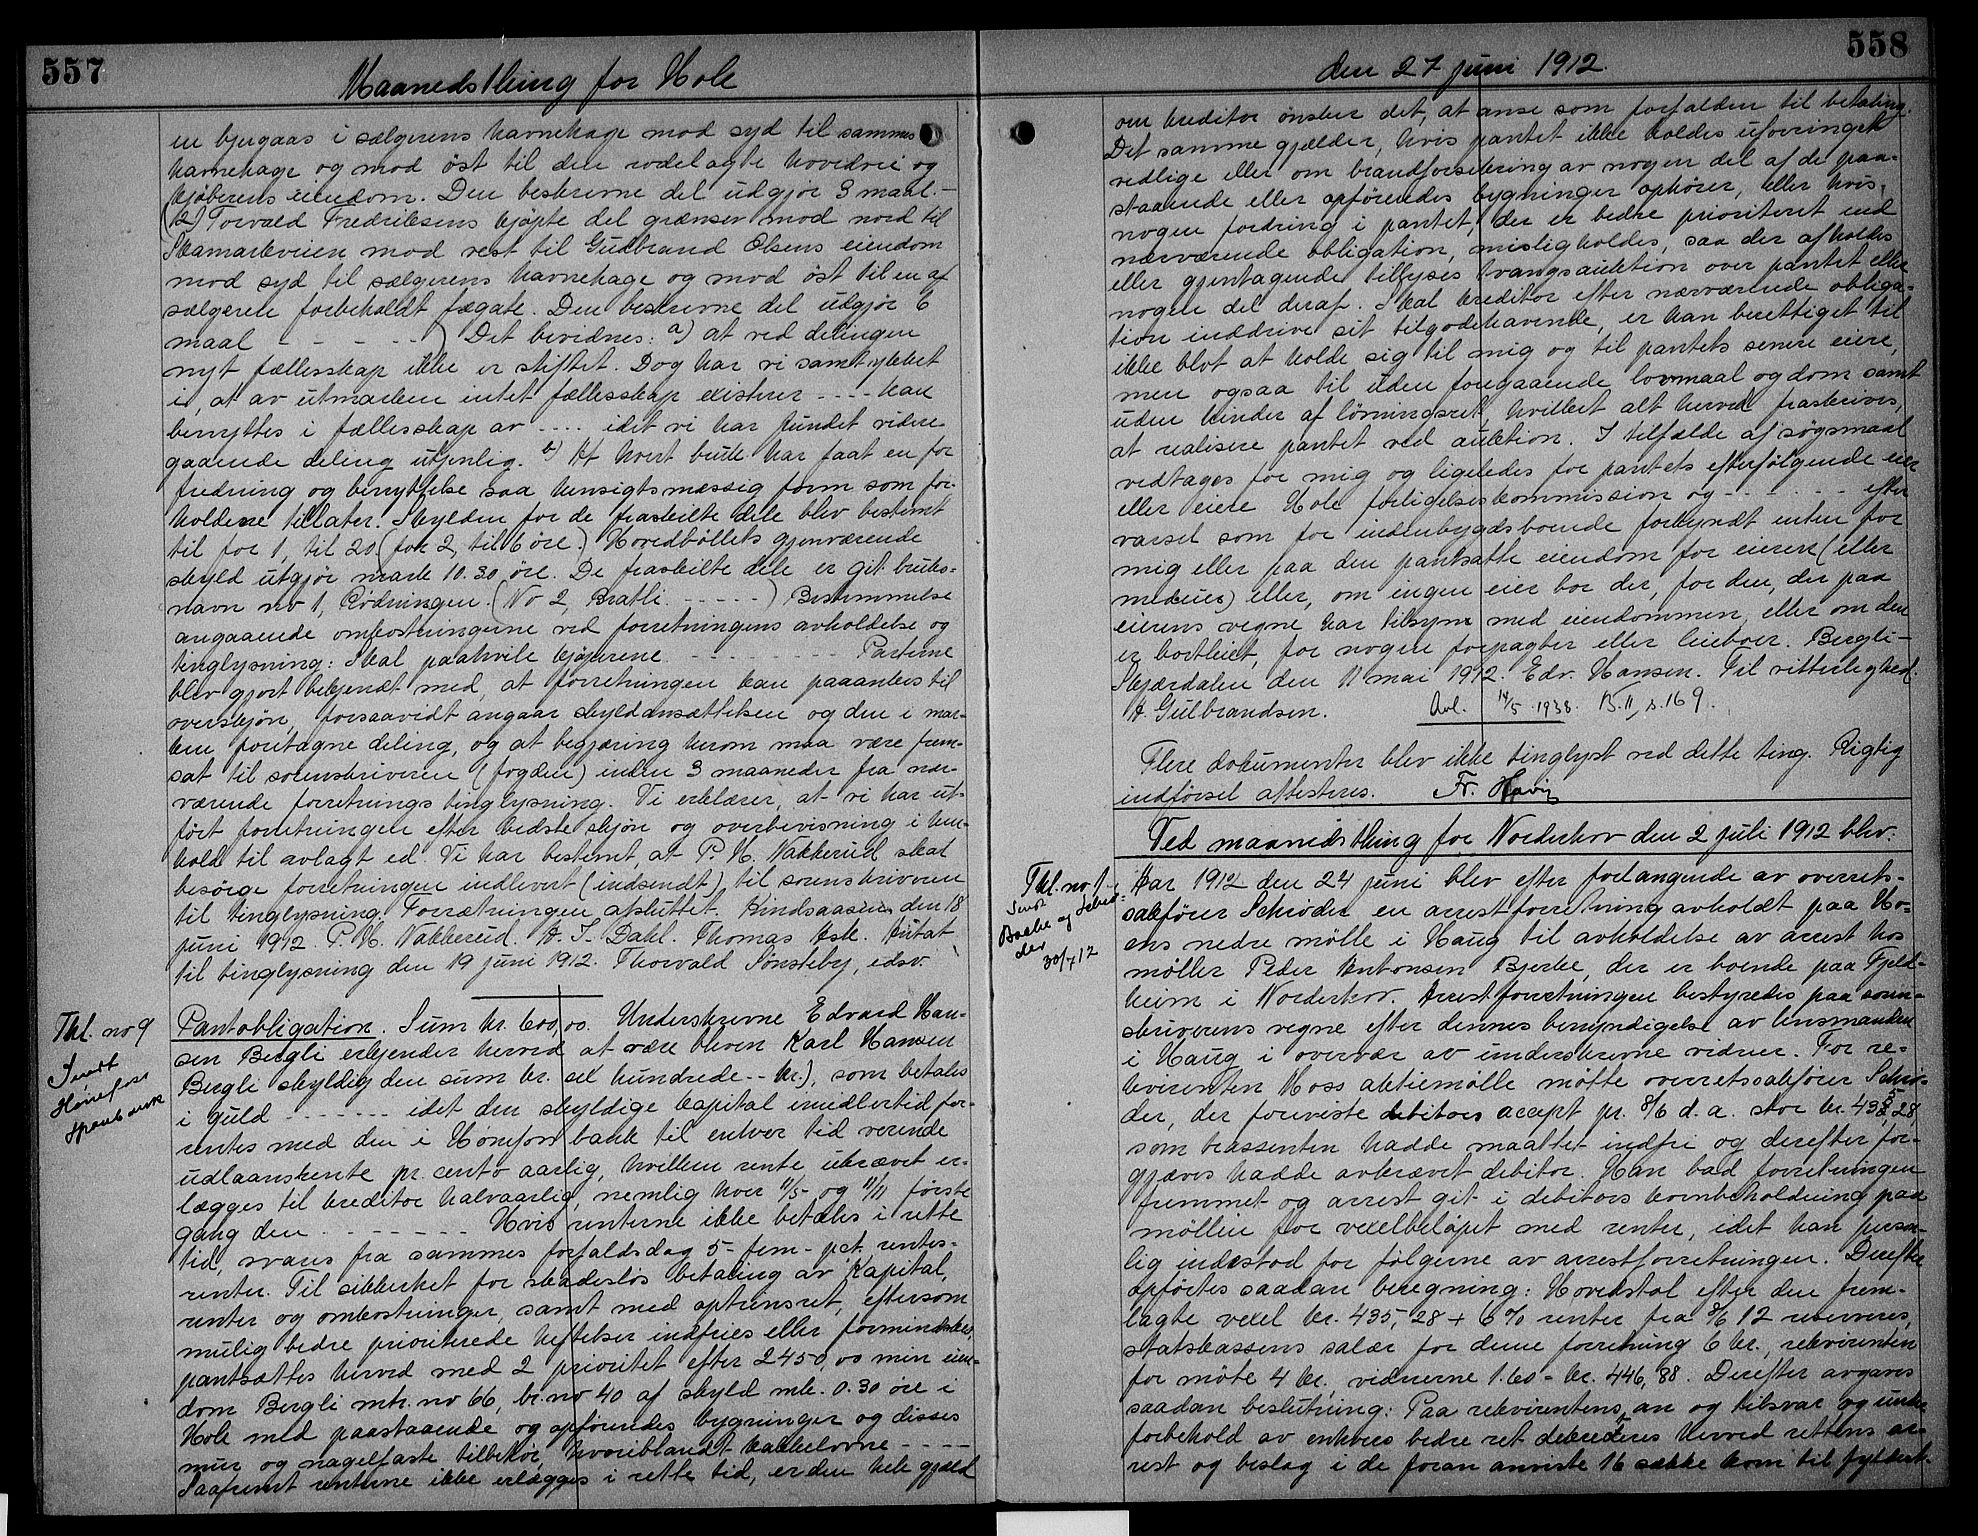 557
Maanedsthing for Hole
en bjergaas i sælgerens havnehage mod syd til sammes
havnehage og mod öst til den nedlagte hovedvei og
kjöberens eiendom. Den beskrevne del utgjör 3 maal.—
(2) Torvald Fredriksens kjöpte del grænser mod nord til
mod vest til Gudbrand Olsens eiendom
mod syd til sælgerens havnehage og mod öst til en af
sælgeren forbeholdt fægate. Den beskrevne del utgjör 6
maal - - - - -) Det bevidnes: a) at ved delingen
nyt fællesskap ikke er stiftet. Dog har vi samtykket
i, at av utmarken intet fællesskap existerer - - - - kan
benyttes i fællesskap av .... idet vi har fundet videre
gaaende deling utjenlig. b) At hvert bruk har faat en for
fredning og benyttelse saa hensigtsmæssig form som for-
holdene tillater. Skylden for de fraskilte dele blev bestemt
til for 1, til 20. (for 2, til 6 öre.) Hovedböllets gjenværende
skyld utgjör mark 10.30 öre. De fraskilte dele er git bruks-
navn no 1, Rödningen. (No 2, Bratli. - - - - -) Bestemmelse
angaaende omkostningerne ved forretningens avholdelse og
tinglysning: Skal paahvile kjöperne. - - - - - - - - Parterne
blev gjort bekjendt med, at forretningen kan paaankes til
overskjön, forsaavidt angaar skyldansættelsen og den i mar-
ken foretagne deling, og at begjæring herom maa være frem-
sat til sorenskriveren (fogden) inden 3 maaneder fra nær-
værende forretnings tinglysning. Vi erklærer, at vi har ut-
fört forretningen efter bedste skjön og overbevisning i hen-
hold til avlagt ed. Vi har bestemt, at P. H. Nakkerud skal
besörge forretningen indlevert (indsendt) til sorenskriveren
til tinglysning. Forrætningen afsluttet. den 18
juni 1912. P. H. Nakkerud. A. I. Dahl. Thomas Ask. Antat
til tinglysning den 19 juni 1912. Thorvald Sönsteby, edsv.
Thl. no 9
Sendt
Hönefoss
Spareb ank
Pantobligation. Sum kr. 600,00. Underskrevne Edvard Han-
sen Bergli erkjender herved at være bleven Karl Hansen
Bergli skyldig den sum kr. sex hundrede -- kr.), som betales
i guld - - - - - - - idet den skyldige kapital imidlertid for-
rentes med den i Hönefos bank til enhver tid værende
udlaansrente pr. cento aarlig, hvilken rente ukrævet er-
lægges til kreditor halvaarlig, nemlig hver 11/5 og 11/11 förste
gang den - - - - - - - Hvis renterne ikke betales i rette
tid, svares fra sammes forfaldsdag 5 - fem - pct. rentes-
renter. Til sikkerhet for skadeslös betaling av kapital,
renter og omkostninger, samt med optrinsret, eftersom
mulig bedre prioriterede heftelser indfries eller formindskes,
pantsættes herved med 2 prioritet efter 2450,00 min eien-
dom Bergli mtr. no 66, br. no 40 af skyld mk. 0.30 öre i
Hole med paastaaende og opförendes bygninger og disses
mur og nagelfaste tilbehör, hvoriblandt kakkelovne - - - -
Saafremt renterne ikke erlægges i rette tid, er den hele gjæld
558
den 27 juni 1912.
om kreditor önsker det, at anse som forfalden til betaling.
Det samme gjælder, hvis pantet ikke holdes uforringet
vedlige eller om brandforsikring av nogen del af de paa-
staaende eller opförendes bygninger ophörer, eller hvis
nogen fordring i pantet, der er bedre prioriteret end
nærværende obligation, misligholdes, saa der afholdes
eller gjentagende tillyses tvangsauktion over pantet eller
nogen del deraf. Skal kreditor efter nærværende obliga-
tion inddrive sit tilgodehavende, er han berettiget til
ikke blot at holde sig til mig og til pantets senere eiere,
men ogsaa til uden foregaaende lovmaal og dom samt
uden hinder af lösningsret, hvilket alt herved fraskrives,
at realisere pantet ved auktion. I tilfælde af sögsmaal
vedtages for mig og ligeledes for pantets efterfölgende eier
eller eiere Hole forligelseskommission og - - - - - - efter
varsel som for indenbygdsboende forkyndt enten for
mig eller paa den pantsatte eiendom for eieren (eller
medeier) eller, om ingen eier bor der, for den, der paa
eierens vegne har tilsyn med eiendommen, eller om den
er bortleiet, for nogen forpagter eller leieboer. Bergli -
Skjærdalen den 11 mai 1912. Edv. Hansen. Til vitterlighed:
A. Gulbrandsen. Avl. 14/5 1938. B. II, s. 169.
Flere dokumenter blev ikke tinglyst ved dette ting. Rigtig
indförsel attesteres. Fr.
Ved maanedsthing for Norderhov den 2 juli 1912 blev:
Thl. no 1
Sendt
Bache og Schrö-
der
30/7 12
Aar 1912 den 24 juni blev efter forlangende av overrets-
sakförer Schröder en arrestforretning avholdt paa Ho-
ens nedre mölle i Haug til avholdelse av arrest hos
möller Peder Antonsen Bjerke, der er boende paa Fjeld-
heim i Norderhov. Arrestforretningen bestyredes paa soren-
skriverens vegne efter dennes bemyndigelse av lensmanden
i Haug i overvær av underskrevne vidner. For re-
kvirenten Moss aktiemölle mötte overretssakförer Schrö-
der, der foreviste debitors accept pr. 8/6 d. a. stor kr. 435,28,
som trassenten hadde maattet indfri og derefter for-
gjæves hadde avkrævet debitor. Han bad forretningen
fremmet og arrest git i debitors kornbeholdning paa
möllen for vexelbelöpet med renter, idet han person-
lig indestod for fölgerne av arrestforretningen. Derefter
opförtes saadan beregning: Hovedstol efter den frem-
lagte vexel kr. 435,28 + 6 % renter fra 8/6 12 reserveres,
statskassens salær for denne forretning 6 kr., rekvirenten
for möte 4 kr., vidnerne 1.60 = kr. 446,88. Derefter avgaves
saadan beslutning: Paa rekvirentens an og tilsvar og under
forbehold av enhvers bedre ret dekreteres herved rettens ar-
rest og beslag i de foran anviste 16 sække korn til fyldest-